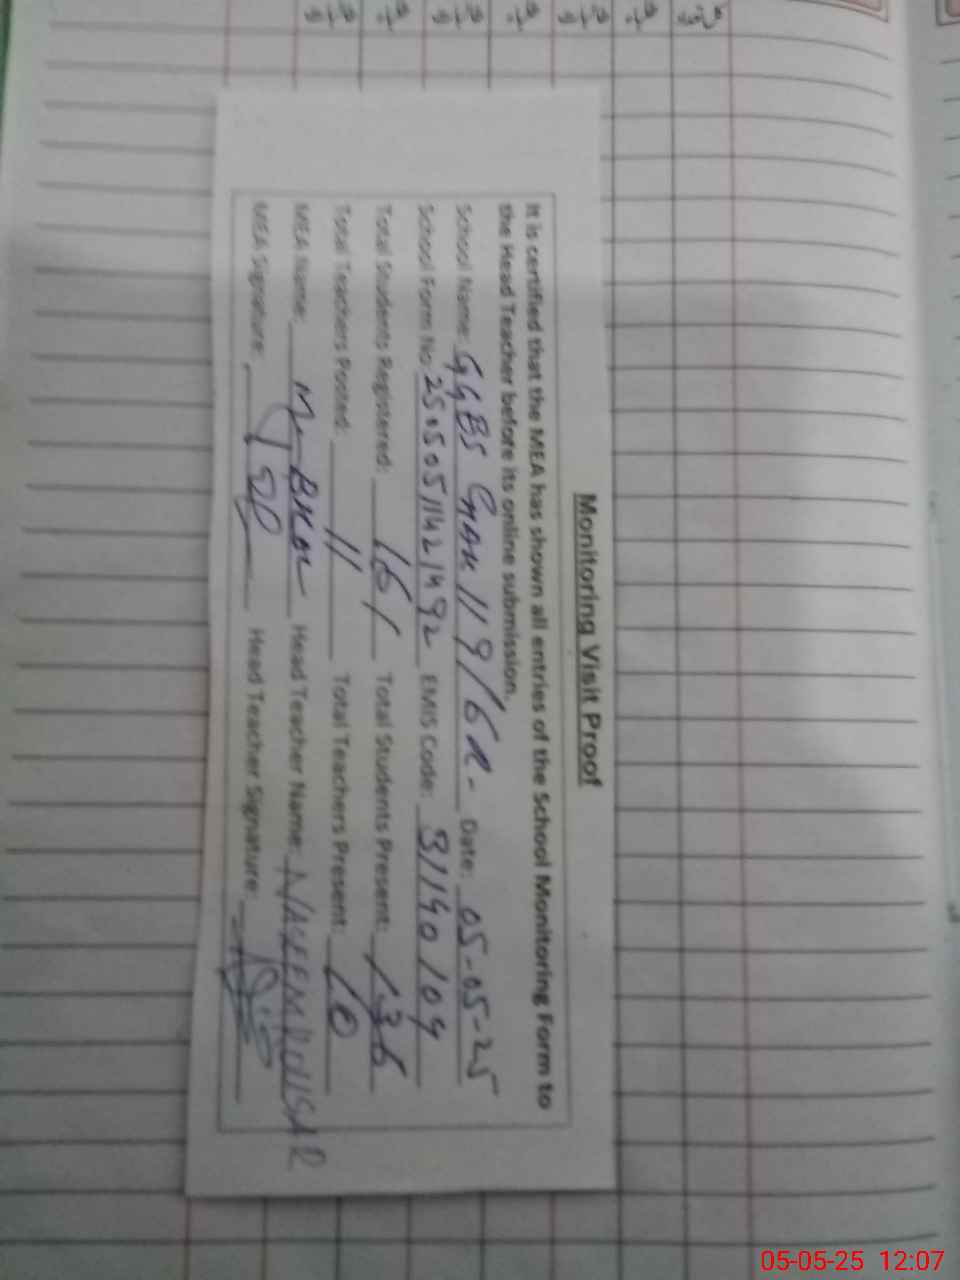 Monitoring Visit Proof
It is certified that the MEA has shown all entries of the School Monitoring Form to
the Head Teacher before its online submission.
School Name: GGES Chak 119/6R- Date: 05-05-25
School Form No: 2505051142 1492 EMIS Code: 31140109
Total Students Registered: 161 Total Students Present: 136
Total Teachers Posted: 11 Total Teachers Present: 10
MEA Name: Head Teacher Name:
MEA Signature: Head Teacher Signature:
05-05-25 12:07